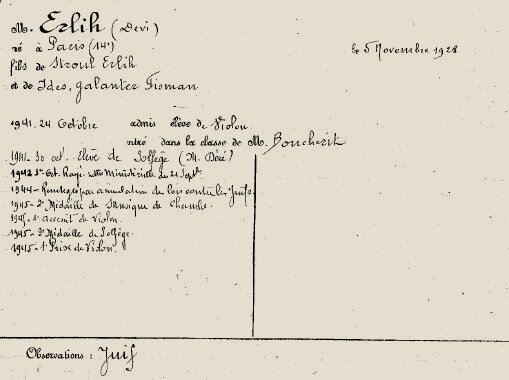 M. Erlih (Devi)
né à Paris (14e) le 5 Novembre 1928
fils de Stroul Erlih
et de Ides, Galanter Fisman
1941. 24 Octobre admis élève de Violon
entré dans la classe de M. Boucherit
1941. 30 oct. Elève de Solfège (M. Déré)
1942 1er Oct. Rayé lettre Ministérielle du 21 Septbre
1944 - Réintégré par annulation de lois contre les Juifs.
1945 - 2e Médaille de Musique de Chambre
1945 - 1er accessit de Violon.
1945 - 2e Médaille de Solfège.
1945 - 1er Prix de Violon.
Observations : Juif